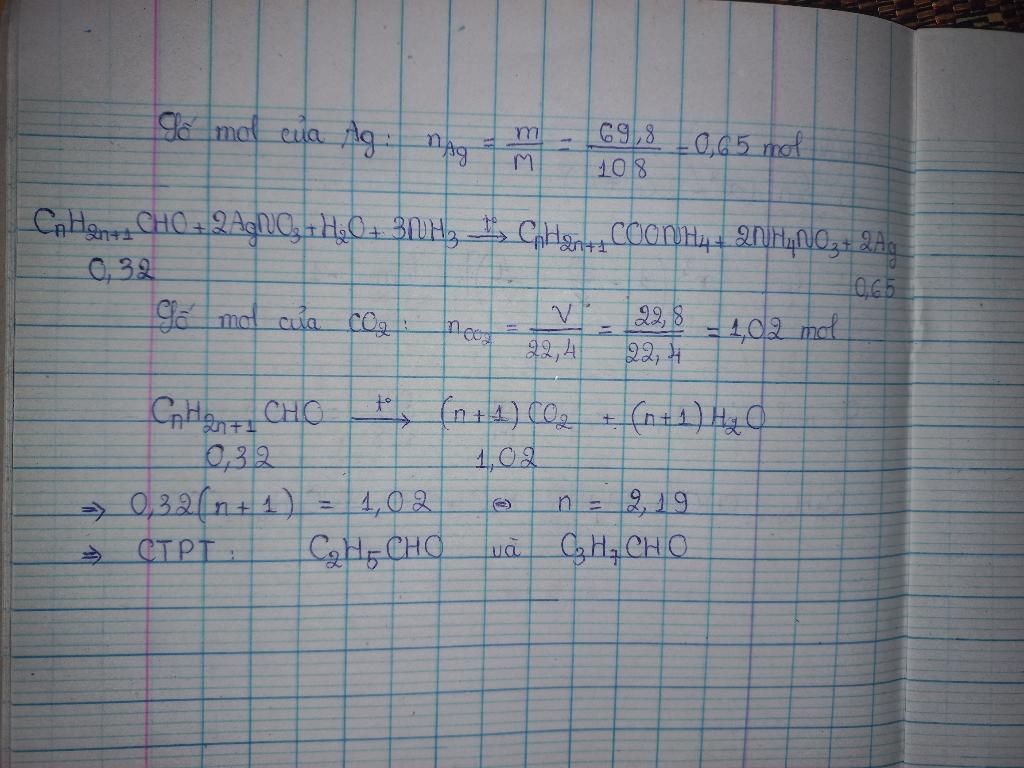 Số mol của Ag: nAg = m/M = 69,8/108 = 0,65 mol
CnH2n+1CHO + 2AgNO3 + H2O + 3NH3 —t°→ CnH2n+1COONH4 + 2NH4NO3 + 2Ag
0,32 0,65
Số mol của CO2: nCO2 = V/22,4 = 22,8/22,4 = 1,02 mol
CnH2n+1CHO —t°→ (n+1)CO2 + (n+1)H2O
0,32 1,02
⇒ 0,32(n+1) = 1,02 ⇔ n = 2,19
⇒ CTPT: C2H5CHO và C3H7CHO